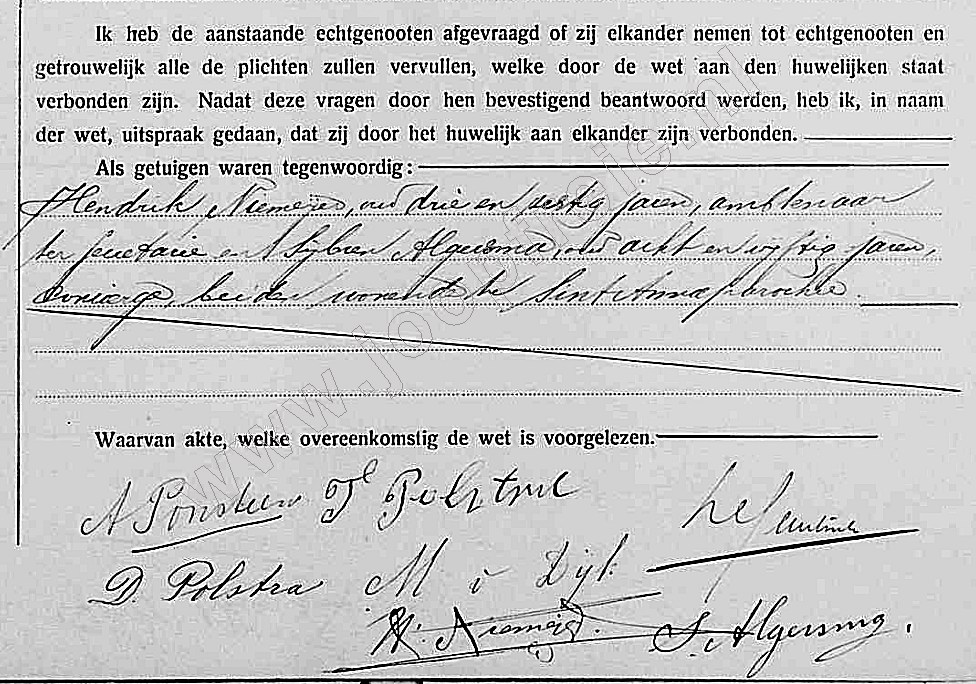 Ik heb de aanstaande echtgenooten afgevraagd of zij elkander nemen tot echtgenooten en
getrouwelijk alle de plichten zullen vervullen, welke door de wet aan den huwelijken staat
verbonden zijn. Nadat deze vragen door hen bevestigend beantwoord werden, heb ik, in naam
der wet, uitspraak gedaan, dat zij door het huwelijk aan elkander zijn verbonden.
Als getuigen waren tegenwoordig:
Hendrik Niemeijer, oud drie en zestig jaren, ambtenaar
ter secretarie en Sijbren Algersma, oud acht en vijftig jaren,
concierge, beiden wonende te Sint Annaparochie.
Waarvan akte, welke overeenkomstig de wet is voorgelezen.
A Ponsteen Tj Polstra
D. Polstra M v Dijk
H. Niemeijer. S. Algersma.
www.joopweie.nl